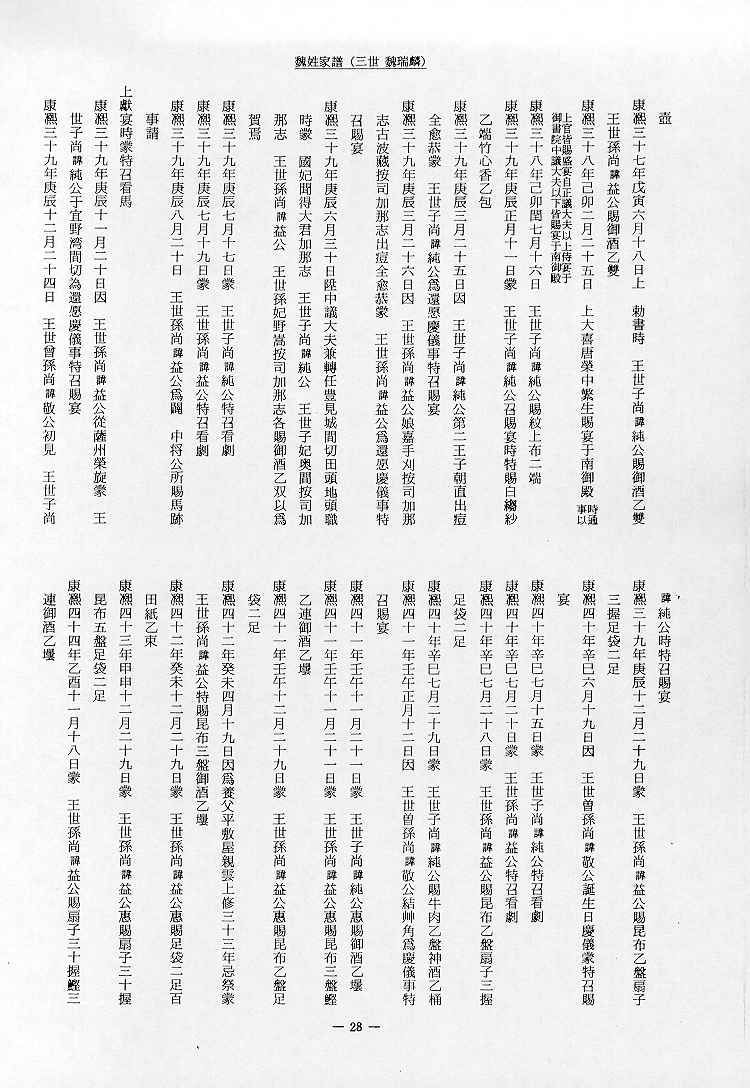 魏姓家譜（三世 魏瑞麟）
壺
康熙三十七年戊寅六月十八日上　勅書時　王世子尚諱純公賜御酒乙雙
王世孫尚諱益公賜御酒乙雙
康熙三十八年己卯二月二十五日　上大喜唐榮中繁生賜宴于南御殿時通事以
上官皆賜盛宴自正議大夫以上侍宴于
御書院中議大夫以下皆賜宴于南御殿
康熙三十八年己卯閏七月十六日　王世子尚諱純公賜紋上布二端
康熙三十九年庚辰正月十一日蒙　王世子尚諱純公召賜宴時特賜白縐紗
乙端竹心香乙包
康熙三十九年庚辰三月二十五日因　王世子尚諱純公第二王子朝直出痘
全愈恭蒙　王世子尚諱純公爲還愿慶儀事特召賜宴
康熙三十九年庚辰三月二十六日因　王世孫尚諱益公娘嘉手刈按司加那
志古波藏按司加那志出痘全愈恭蒙　王世孫尚諱益公爲還愿慶儀事特
召賜宴
康熙三十九年庚辰六月三十日陞中議大夫兼轉任豊見城間切田頭地頭職
時蒙　國妃聞得大君加那志　王世子尚諱純公　王世子妃奥間按司加
那志　王世孫尚諱益公　王世孫妃野嵩按司加那志各賜御酒乙双以爲
賀焉
康熙三十九年庚辰七月十七日蒙　王世子尚諱純公特召看劇
康熙三十九年庚辰七月十九日蒙　王世孫尚諱益公特召看劇
康熙三十九年庚辰八月二十日　王世孫尚諱益公爲闢　中将公所賜馬跡
事請
上獻宴時蒙特召看馬
康熙三十九年庚辰十一月二十日因　王世孫尚諱益公從薩州榮旋蒙　王
世子尚諱純公于宜野湾間切為還愿慶儀事特召賜宴
康熙三十九年庚辰十二月二十四日　王世曾孫尚諱敬公初見　王世子尚
諱純公時特召賜宴
康熙三十九年庚辰十二月二十九日蒙　王世孫尚諱益公賜昆布乙盤扇子
三握足袋二足
康熙四十年辛巳六月十九日因　王世曽孫尚諱敬公誕生日慶儀蒙特召賜
宴
康熙四十年辛巳七月十五日蒙　王世子尚諱純公特召看劇
康熙四十年辛巳七月二十日蒙　王世孫尚諱益公特召看劇
康熙四十年辛巳七月二十八日蒙　王世孫尚諱益公賜昆布乙盤扇子三握
足袋二足
康熙四十年辛巳七月二十九日蒙　王世子尚諱純公賜牛肉乙盤神酒乙桶
康熙四十一年壬午正月十二日因　王世曽孫尚諱敬公結艸角爲慶儀事特
召賜宴
康熙四十一年壬午十一月二十一日蒙　王世子尚諱純公惠賜御酒乙壜
康熙四十一年壬午十一月二十一日蒙　王世孫尚諱益公惠賜昆布三盤鰹
乙連御酒乙壜
康熙四十一年壬午十二月二十九日蒙　王世孫尚諱益公惠賜昆布乙盤足
袋二足
康熙四十二年癸未四月十九日因為養父平敷屋親雲上修三十三年忌祭蒙
王世孫尚諱益公特賜昆布三盤御酒乙壜
康熙四十二年癸未十二月二十九日蒙　王世孫尚諱益公惠賜足袋二足百
田紙乙束
康熙四十三年甲申十二月二十九日蒙　王世孫尚諱益公惠賜扇子三十握
昆布五盤足袋二足
康熙四十四年乙酉十一月十八日蒙　王世孫尚諱益公賜扇子三十握鰹三
連御酒乙壜
— 28 —